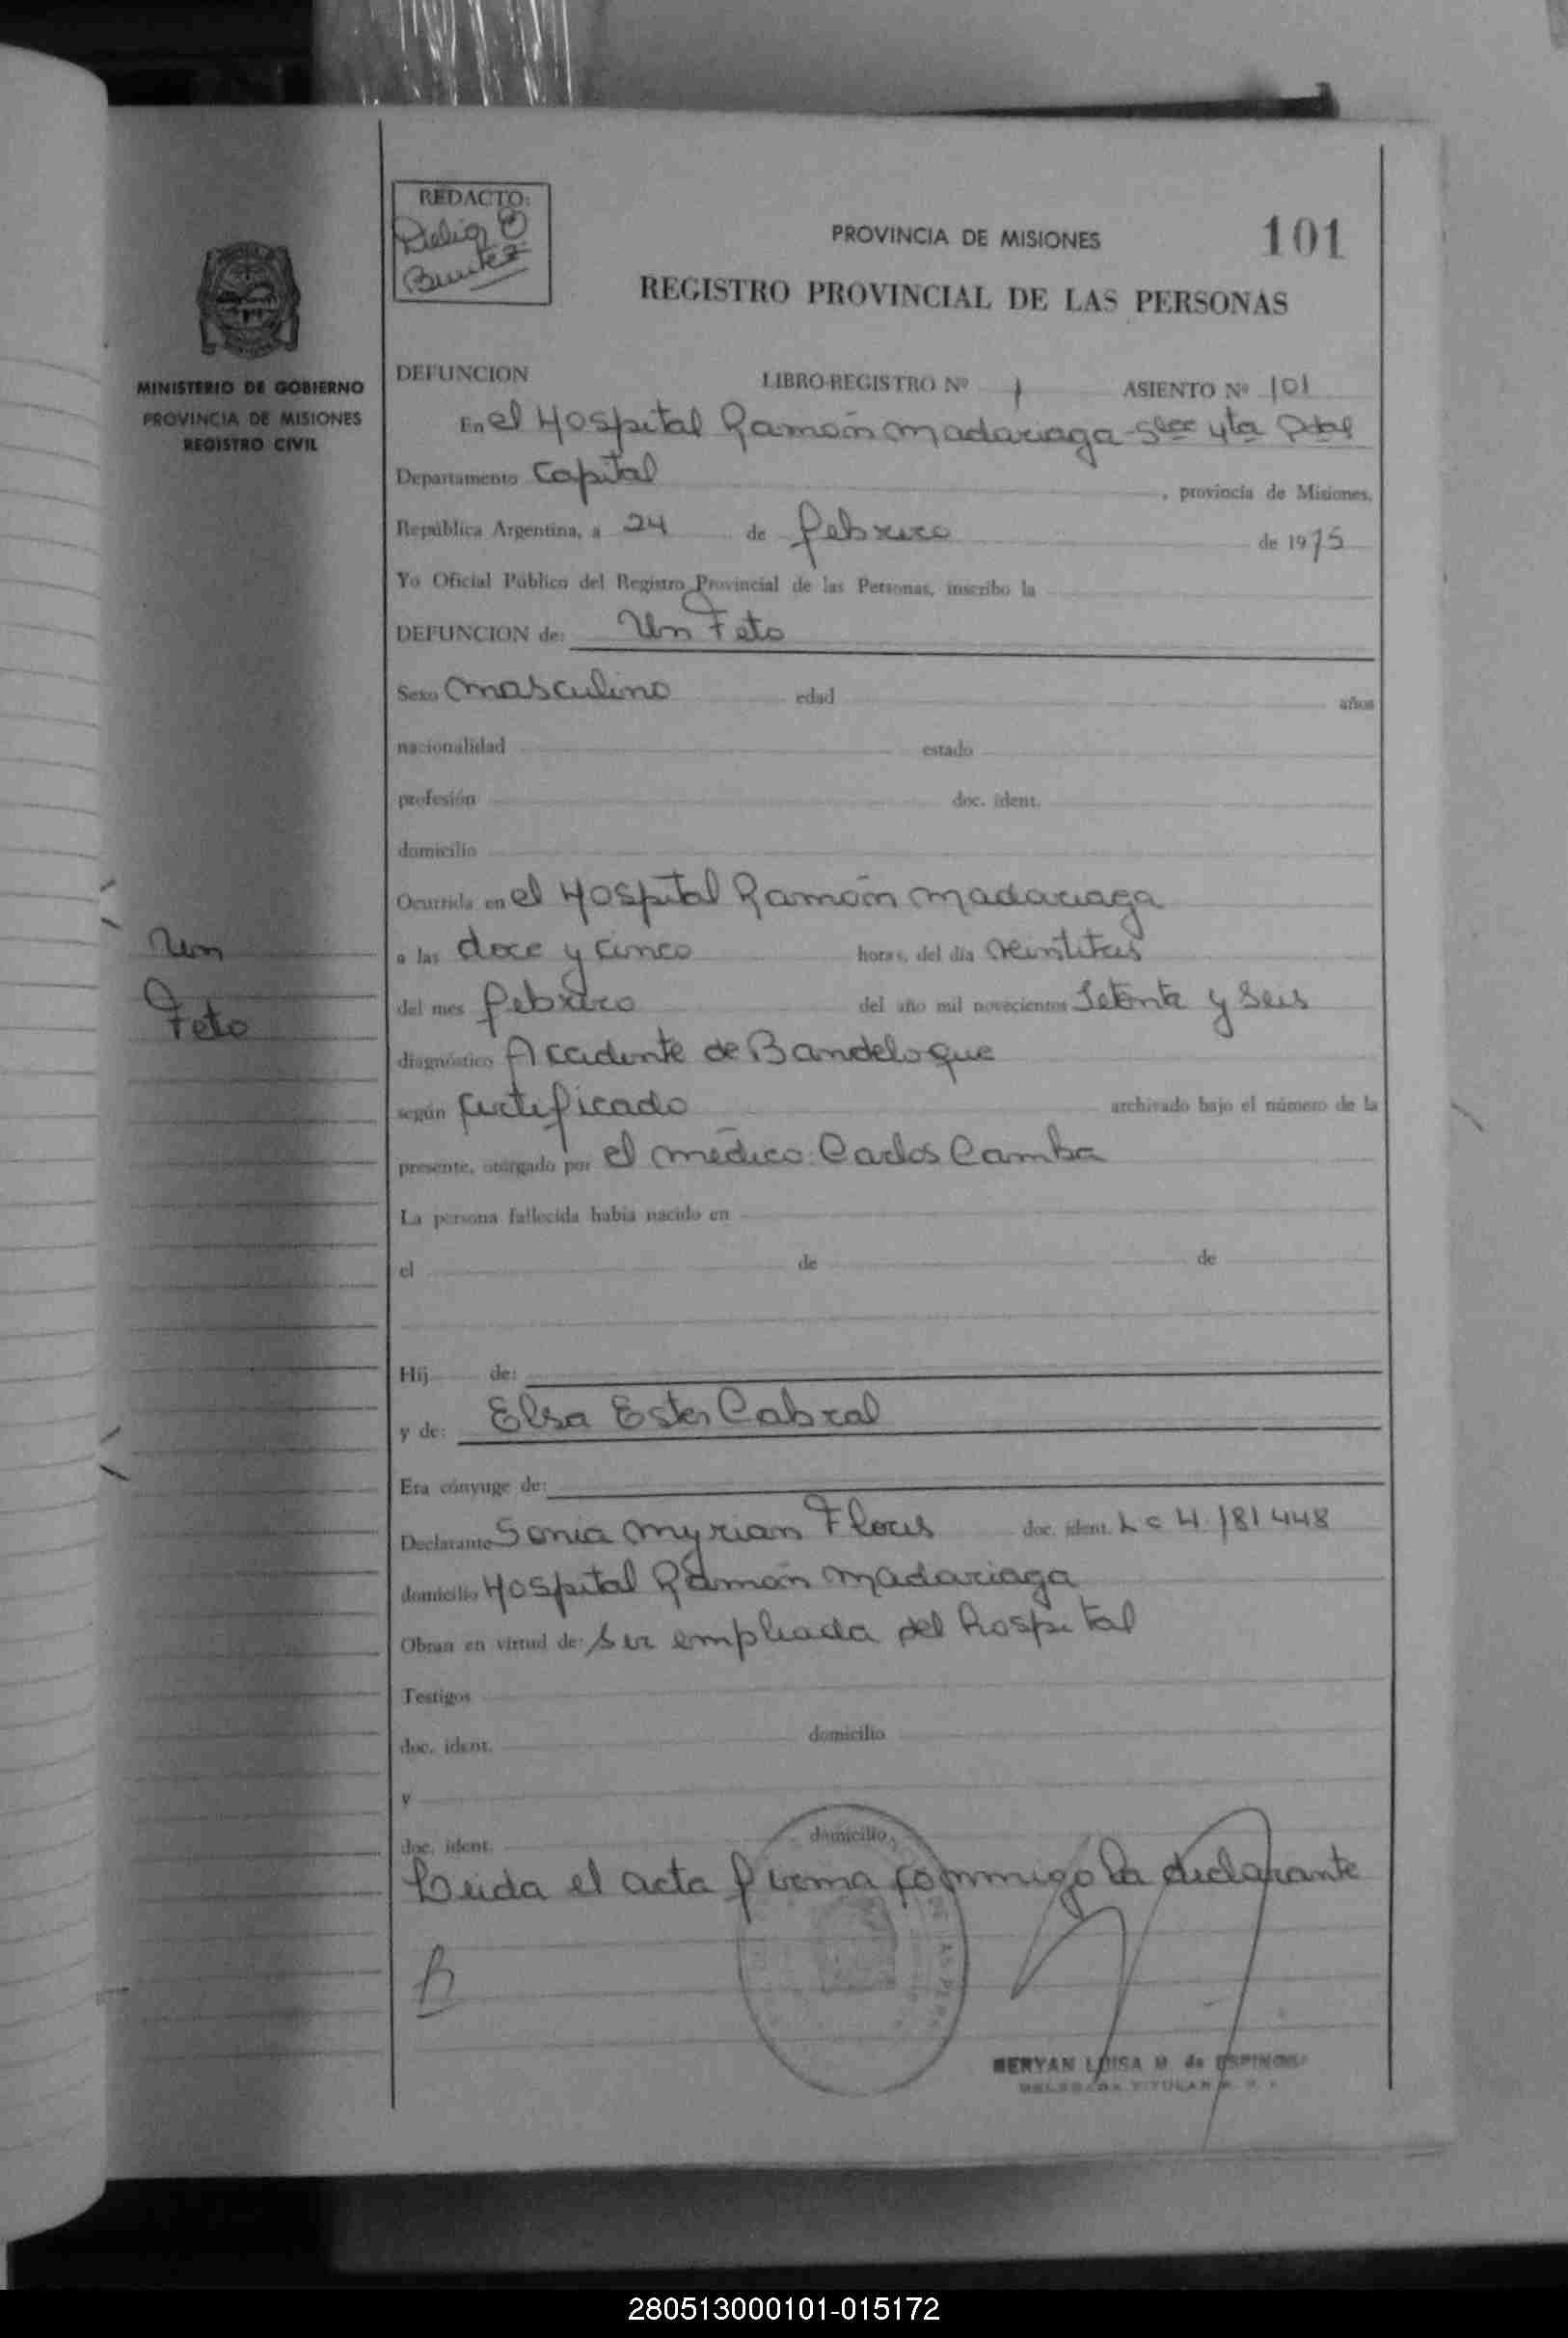 REDACTO:
Delia O
Benitez
PROVINCIA DE MISIONES
101
REGISTRO PROVINCIAL DE LAS PERSONAS
MINISTERIO DE GOBIERNO
PROVINCIA DE MISIONES
REGISTRO CIVIL
DEFUNCION LIBRO-REGISTRO Nº 1 ASIENTO Nº 101
En el Hospital Ramón Madariaga 4ta
Departamento Capital, provincia de Misiones,
República Argentina, a 24 de febrero de 1975
Yo Oficial Público del Registro Provincial de las Personas, inscribo la
DEFUNCION de: Un Feto
Sexo masculino edad años
nacionalidad estado
profesión doc. ident.
domicilio
Ocurrida en el Hospital Ramón Madariaga
a las doce y cinco horas, del día veintitres
del mes febrero del año mil novecientos setenta y seis
diagnóstico Accidente de Bandeloque
según certificado archivado bajo el número de la
presente, otorgado por el médico: Carlos Camba
La persona fallecida había nacido en
el de de
Hij de:
y de: Elsa Ester Cabral
Era cónyuge de:
Declarante Sonia Myrian Flores doc. ident. L C 4.181448
domicilio Hospital Ramón Madariaga
Obran en virtud de: ser empleada del hospital
Testigos
doc. ident. domicilio
y
doc. ident. domicilio
Leida el acta firma conmigo la declarante
Un
Feto
LUISA M. de ESPINOSA
DELEGADA TITULAR
280513000101-015172